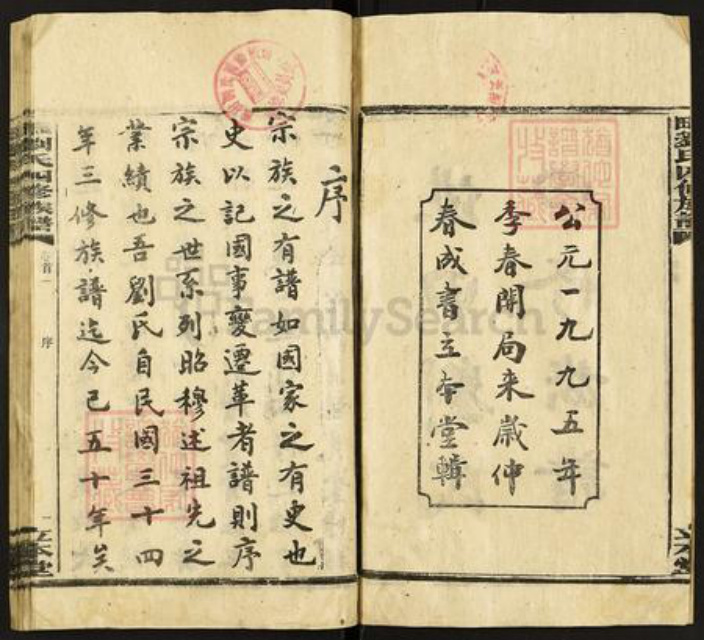 公元一九九五年
季春開局来歲仲
春成書立本堂輯
劉氏四修族譜
立本堂
序
宗族之有譜如國家之有史也
史以記國事變遷革者譜則序
宗族之世系列昭穆述祖先之
業績也吾劉氏自民國三十四
年三修族譜迄今已五十年矣
劉氏四修族譜
首一
序
一
立本堂
FamilySearch